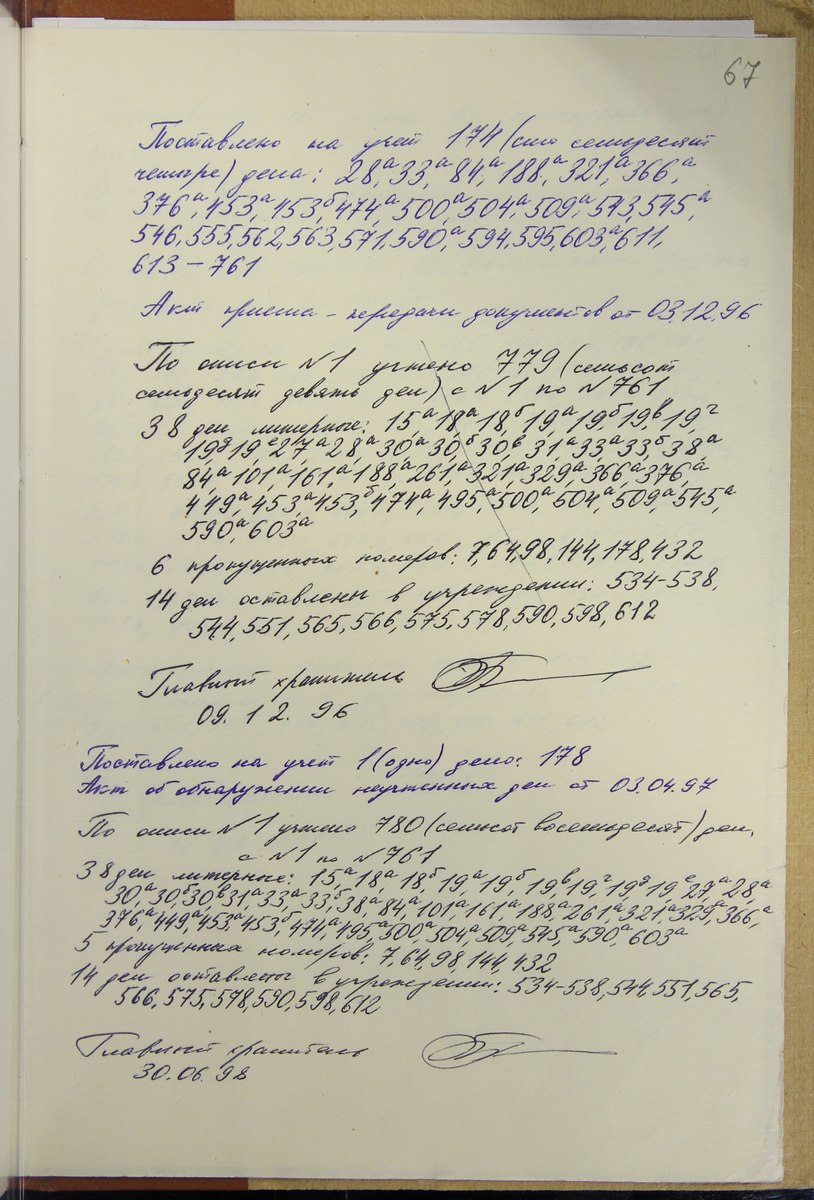 67
Поставлено на учет 174 (сто семьдесят
четыре) дела: 28а, 33а, 84а, 188а, 321а, 366а,
376а, 453а, 453б, 474а, 500а, 504а, 509а, 543, 545а,
546, 555, 562, 563, 571, 590а, 594, 595, 603а, 611,
613 – 761
Акт приема – передачи документов от 03.12.96
По описи №1 учтено 779 (семьсот
семьдесят девять дел) с №1 по №761
38 дел литерные: 15а, 18а, 18б, 19а, 19б, 19в, 19г,
19д, 19е, 27а, 28а, 30а, 30б, 30в, 31а, 33а, 33б, 38а,
84а, 101а, 161а, 188а, 261а, 321а, 329а, 366а, 376а,
449а, 453а, 453б, 474а, 495а, 500а, 504а, 509а, 545а,
590а, 603а
6 пропущенных номеров: 7, 64, 98, 144, 178, 432
14 дел оставлены в учреждении: 534-538,
544, 551, 565, 566, 575, 578, 590, 598, 612
Главный хранитель
09. 12. 96
Поставлено на учет 1 (одно) дело: 178
Акт об обнаружении неучтенных дел от 03.04.97
По описи №1 учтено 780 (семьсот восемьдесят) дел,
с №1 по №761
38 дел литерные: 15а, 18а, 18б, 19а, 19б, 19в, 19г, 19д, 19е, 27а, 28а,
30а, 30б, 30в, 31а, 33а, 33б, 38а, 84а, 101а, 161а, 188а, 261а, 321а, 329а, 366а,
376а, 449а, 453а, 453б, 474а, 495а, 500а, 504а, 509а, 545а, 590а, 603а
5 пропущенных номеров: 7, 64, 98, 144, 432
14 дел оставлены в учреждении: 534-538, 544, 551, 565,
566, 575, 578, 590, 598, 612
Главный хранитель
30.06.98